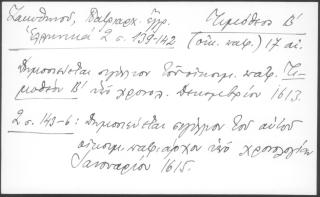 Ζακυθηνοῦ, Πατριαρχ. ἔγγρ. Τιμόθεος Β΄
Ἑλληνικά 2 σ. 139-142 (οἰκ. πατρ.) 17 αἰ.
Δημοσιεύεται σιγίλλιον τοῦ οἰκουμ. πατρ. Τι-
μοθέου Β΄ ὑπό χρονολ. Δεκεμβρίου 1613.
2 σ. 143-6: Δημοσιεύεται σιγίλλιον τοῦ αὐτοῦ
οἰκουμ. πατριάρχου ὑπό χρονολογίαν
Ἰανουαρίου 1615.